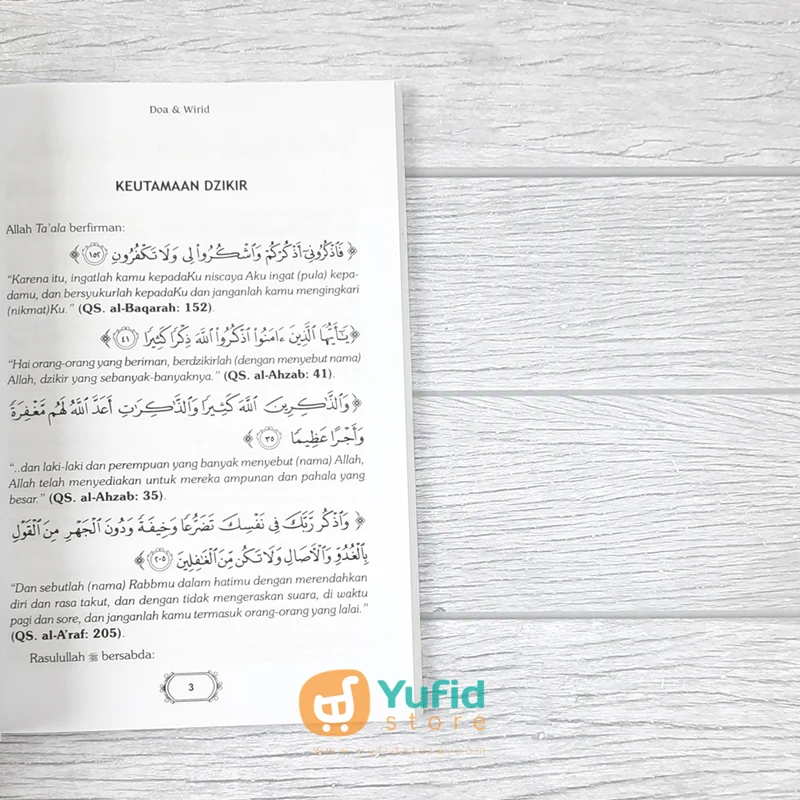 Doa & Wirid
KEUTAMAAN DZIKIR
Allah Ta'ala berfirman:
﴿ فَاذْكُرُونِيٓ أَذْكُرْكُمْ وَاشْكُرُوا لِي وَلَا تَكْفُرُونِ ١٥٢ ﴾
“Karena itu, ingatlah kamu kepadaKu niscaya Aku ingat (pula) kepa-
damu, dan bersyukurlah kepadaKu dan janganlah kamu mengingkari
(nikmat)Ku.” (QS. al-Baqarah: 152).
﴿ يَٰٓأَيُّهَا ٱلَّذِينَ ءَامَنُوا۟ ٱذْكُرُوا۟ ٱللَّهَ ذِكْرًا كَثِيرًا ٤١ ﴾
“Hai orang-orang yang beriman, berdzikirlah (dengan menyebut nama)
Allah, dzikir yang sebanyak-banyaknya.” (QS. al-Ahzab: 41).
﴿ وَٱلذَّٰكِرِينَ ٱللَّهَ كَثِيرًا وَٱلذَّٰكِرَٰتِ أَعَدَّ ٱللَّهُ لَهُم مَّغْفِرَةً
وَأَجْرًا عَظِيمًا ٣٥ ﴾
“..dan laki-laki dan perempuan yang banyak menyebut (nama) Allah,
Allah telah menyediakan untuk mereka ampunan dan pahala yang
besar.” (QS. al-Ahzab: 35).
﴿ وَٱذْكُر رَّبَّكَ فِى نَفْسِكَ تَضَرُّعًا وَخِيفَةً وَدُونَ ٱلْجَهْرِ مِنَ ٱلْقَوْلِ
بِٱلْغُدُوِّ وَٱلْءَاصَالِ وَلَا تَكُن مِّنَ ٱلْغَٰفِلِينَ ٢٠٥ ﴾
“Dan sebutlah (nama) Rabbmu dalam hatimu dengan merendahkan
diri dan rasa takut, dan dengan tidak mengeraskan suara, di waktu
pagi dan sore, dan janganlah kamu termasuk orang-orang yang lalai.”
(QS. al-A'raf: 205).
Rasulullah ﷺ bersabda:
3
Yufid
store
www.yufidstore.com